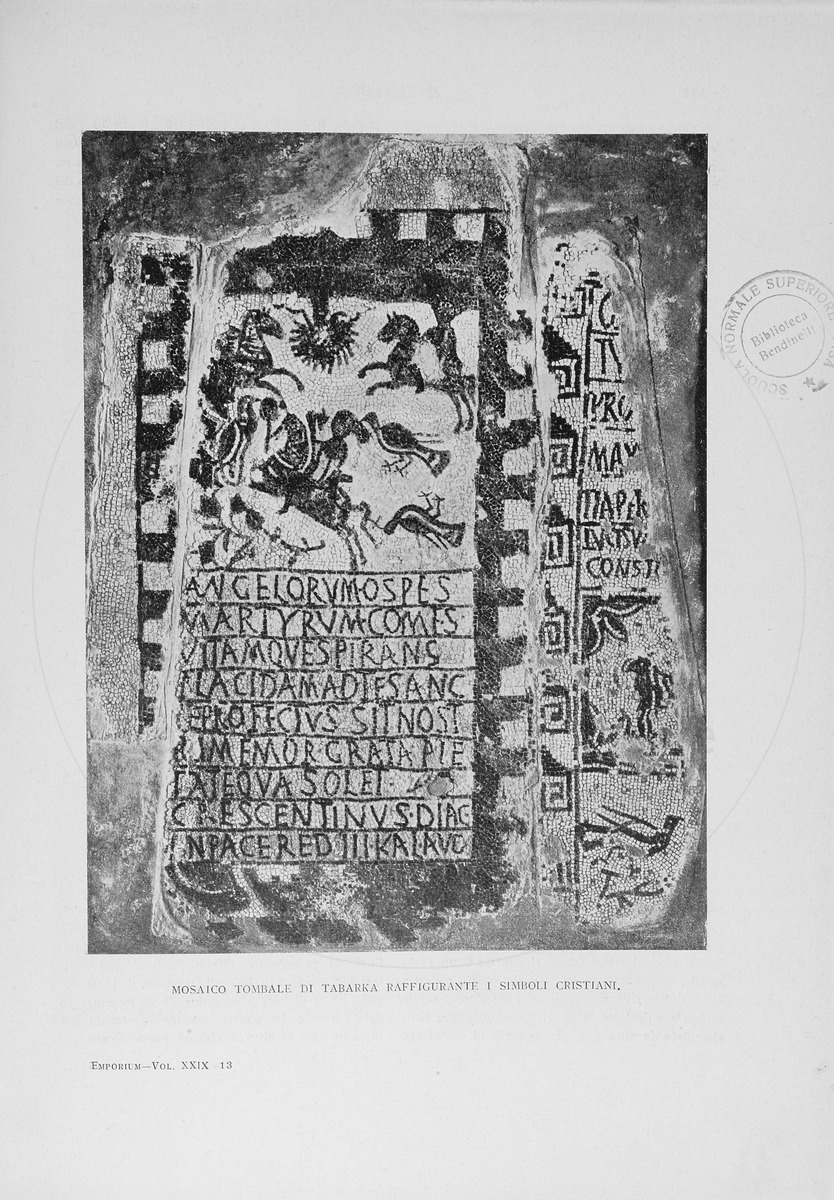 ANGELORVM·OSPES
MARTYRVM·COMES·
VITAMQVESPIRANS
PLACIDAMADIESANC
TEPROFECIVSSITNOST
RIMEMOR·GRATA·PIE
TATEQVASOLEI·
CRESCENTINVS·DIAC
INPACERED III KALAVG
MAV
CONSTI
MOSAICO TOMBALE DI TABARKA RAFFIGURANTE I SIMBOLI CRISTIANI.
EMPORIUM—VOL. XXIX 13
SCUOLA NORMALE SUPERIOR
Biblioteca
Bendinelli